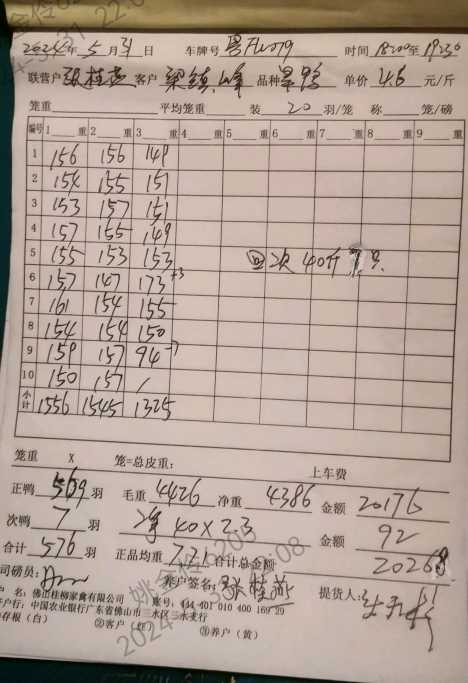 2024年 5月 31日 车牌号 粤F 时间 18:00至19:30
联营户 张桂燕 客户 梁镇峰 品种 单价 4.6 元/斤
笼重 平均笼重 装 20 羽/笼 称 笼/磅
编号 1 重 2 重 3 重 4 重 5 重 6 重 7 重 8 重 9 重
1 156 156 149
2 154 155 151
3 153 157 151
4 157 155 149
5 155 153 153 回次 40斤 7只
6 157 147 173 +3
7 161 154 155
8 154 154 150
9 159 157 94 -7
10 150 157 /
小计 1556 1545 1325
笼重 X 笼=总皮重: 上车费
正鸭 569 羽 毛重 4426 净重 4386 金额 20176
次鸭 7 羽 净 40×2.3 金额 92
合计 576 羽 正品均重 7.71 合计总金额 20268
司磅员: 养户签名: 张桂燕 提货人:
户 名: 佛山桂柳家禽有限公司 账号: 444 401 010 400 169 29
开户行: 中国农业银行广东省佛山市三水区三水支行
存根(白) ②客户(红) ③养户(黄)